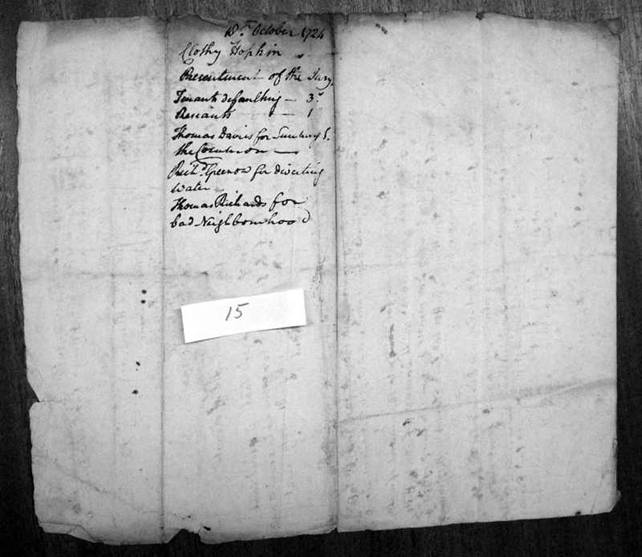 18.t October 1724
Clothy Hopkin
Presentment of the Jury
Tenants defaulting — 3.
Resiants — 1
Thomas Davies for
the Common —
Rich.d Greenow for diverting
water
Thomas Richards for
bad Neighbourhood
15